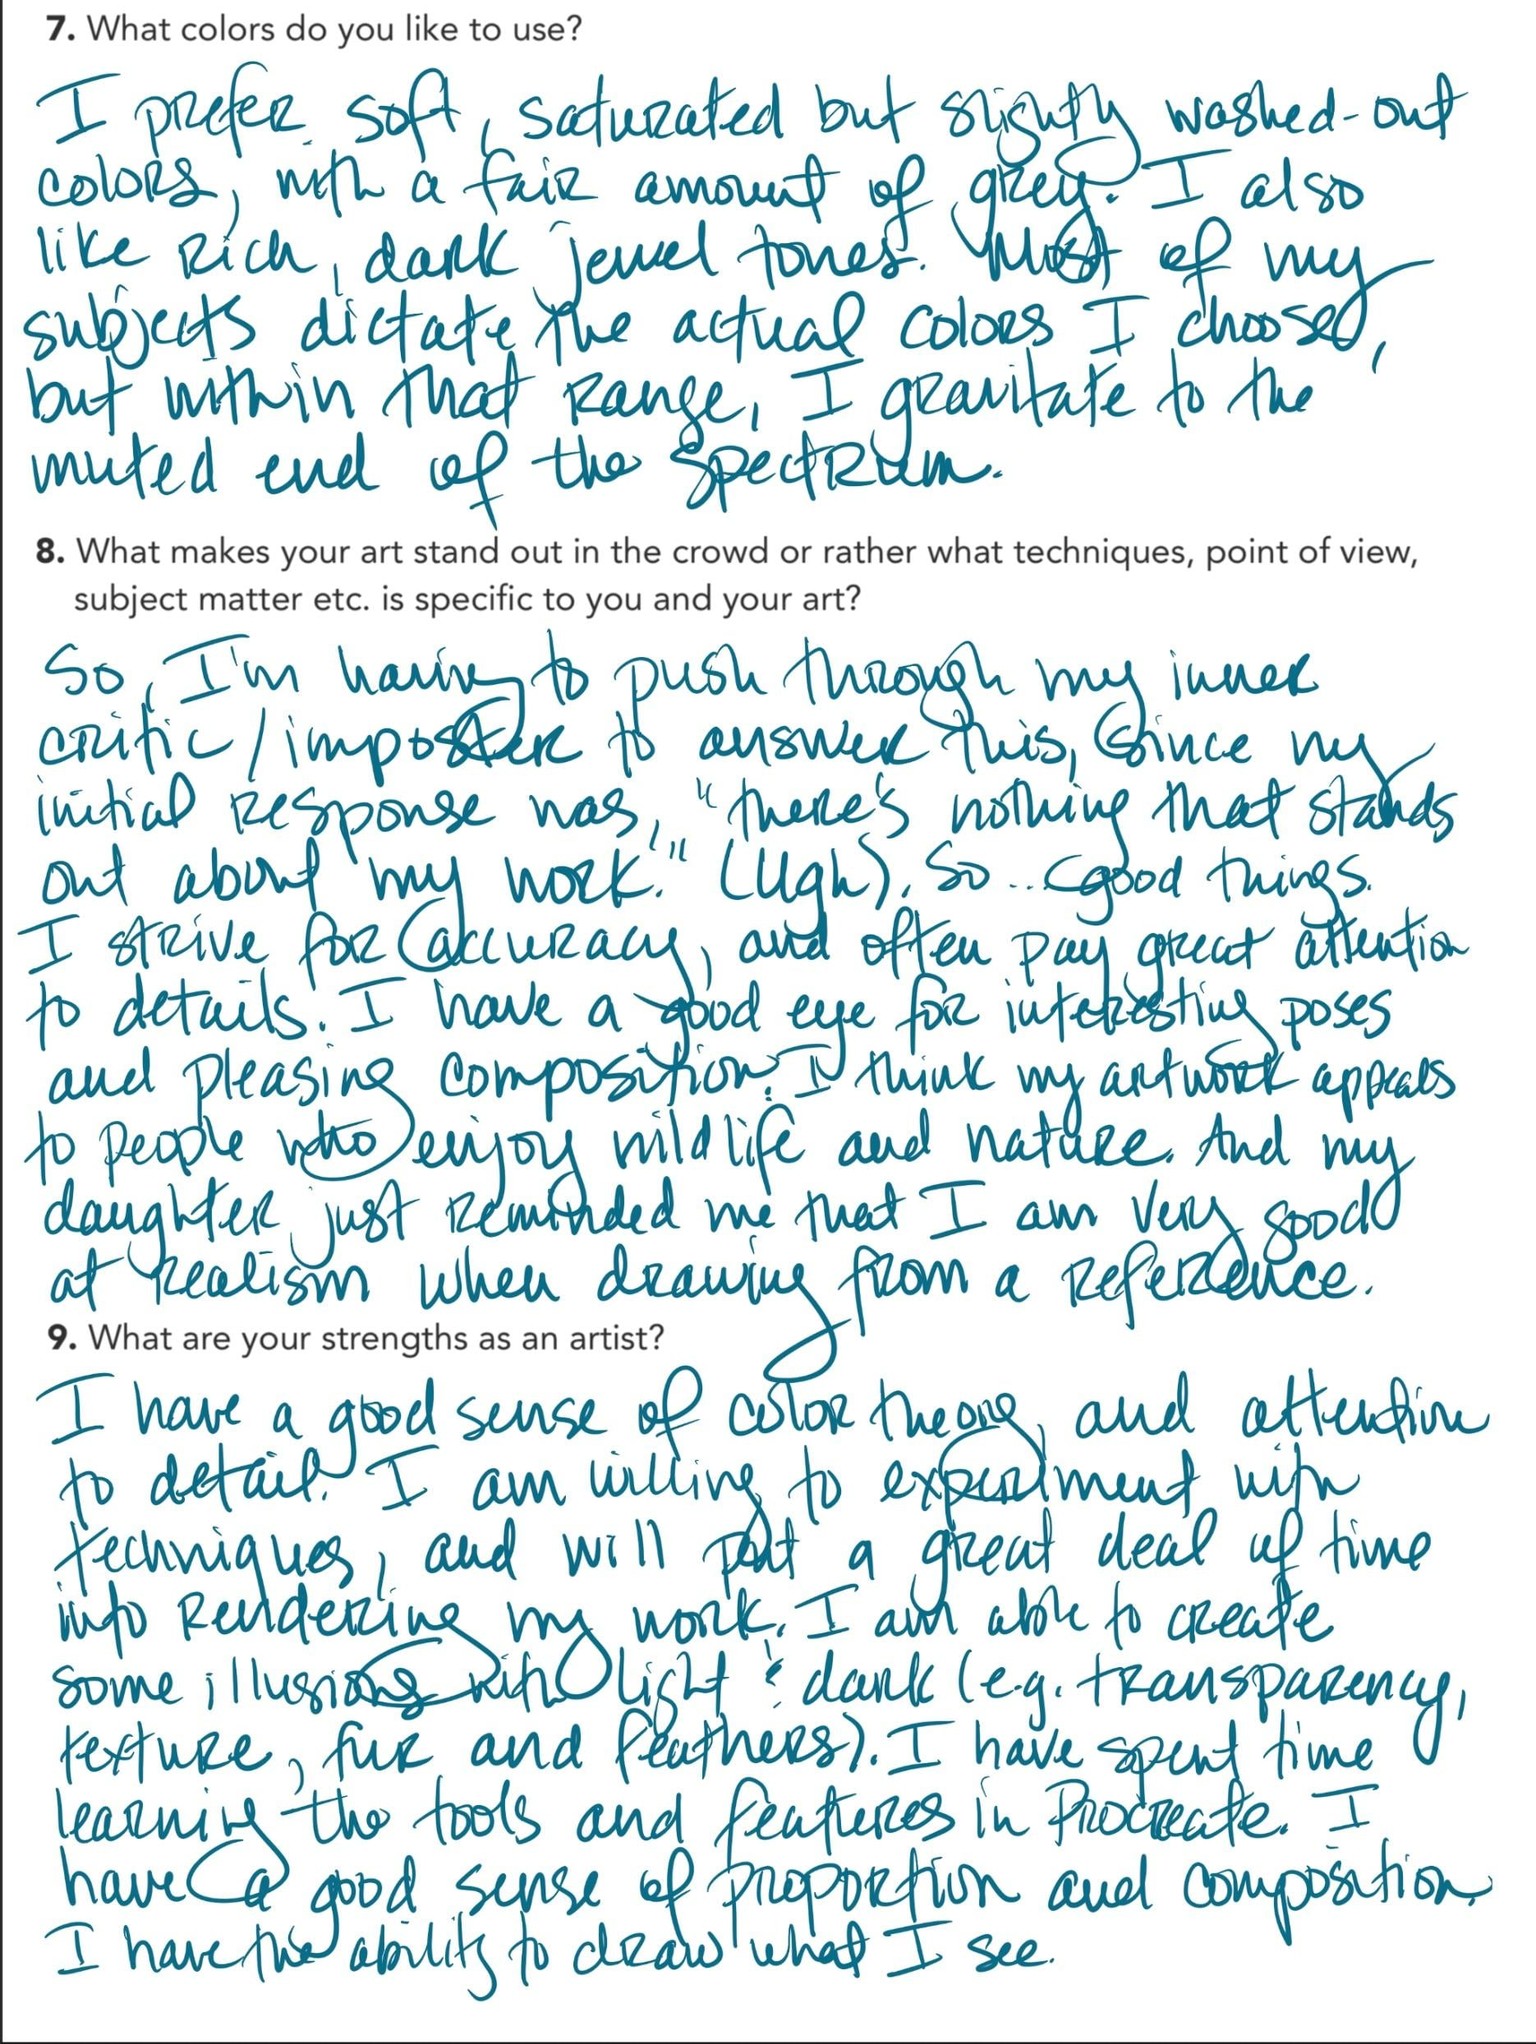 7. What colors do you like to use?
I prefer soft, saturated but slightly washed-out
colors, with a fair amount of grey. I also
like rich, dark jewel tones. Most of my
subjects dictate the actual colors I choose,
but within that range, I gravitate to the
muted end of the spectrum.
8. What makes your art stand out in the crowd or rather what techniques, point of view,
subject matter etc. is specific to you and your art?
So, I'm having to push through my inner
critic/imposter to answer this, since my
initial response was, "there's nothing that stands
out about my work." (Ugh). So... good things.
I strive for accuracy, and often pay great attention
to details. I have a good eye for interesting poses
and pleasing composition. I think my artwork appeals
to people who enjoy wildlife and nature. And my
daughter just reminded me that I am very good
at realism when drawing from a reference.
9. What are your strengths as an artist?
I have a good sense of color theory, and attention
to detail. I am willing to experiment with
techniques, and will put a great deal of time
into rendering my work. I am able to create
some illusions with light & dark (e.g. transparency,
texture, fur and feathers). I have spent time
learning the tools and features in Procreate. I
have a good sense of proportion and composition.
I have the ability to draw what I see.